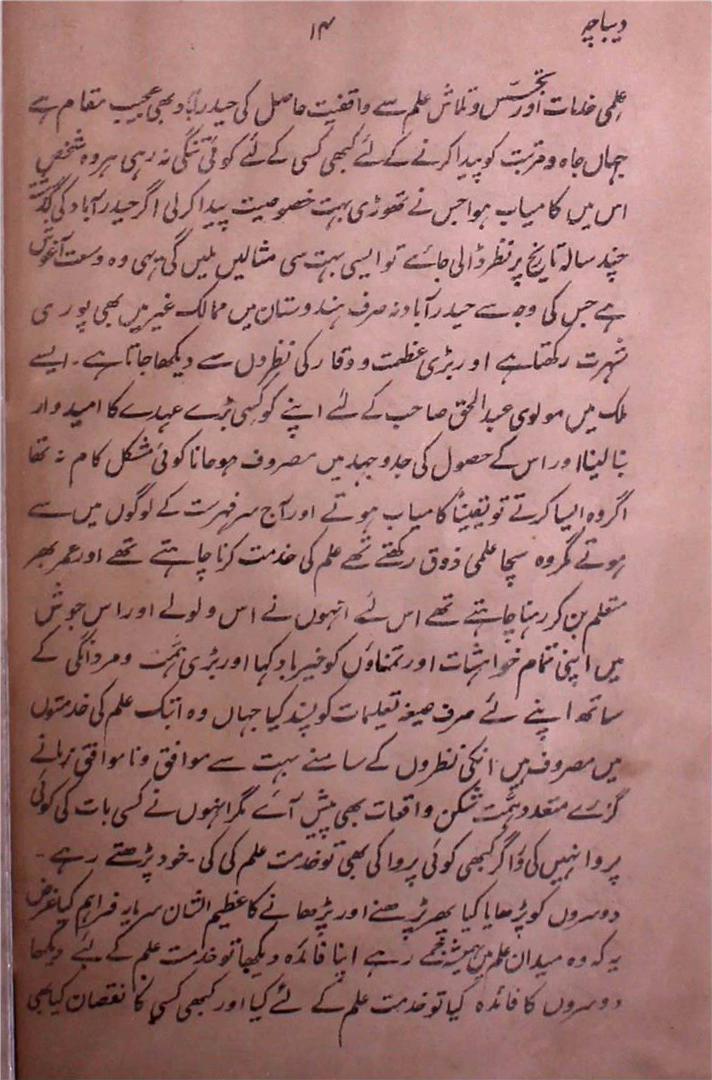 دیباچہ
۱۴
علمی خدمات اور تجسّس و تلاش علم سے واقفیت حاصل کی حیدرآباد بھی عجیب مقام ہے
جہاں جاہ و قربت کو پیدا کرنے کے لئے کبھی کسی کے لئے کوئی تنگی نہ رہی ہر وہ شخص
اس میں کامیاب ہوا جس نے تھوڑی بہت خصوصیت پیدا کر لی اگر حیدرآباد کی گذشتہ
چند سالہ تاریخ پر نظر ڈالی جائے تو ایسی بہت سی مثالیں ملیں گی یہی وہ وسعت آغوش
ہے جس کی وجہ سے حیدرآباد نہ صرف ہندوستان میں ممالک غیر میں بھی پوری
شہرت رکھتا ہے اور بڑی عظمت و وقار کی نظروں سے دیکھا جاتا ہے ۔ ایسے
ملک میں مولوی عبدالحق صاحب کے لئے اپنے کو کسی بڑے عہدے کا امیدوار
بنا لینا اور اس کے حصول کی جد و جہد میں مصروف ہو جانا کوئی مشکل کام نہ تھا
اگر وہ ایسا کرتے تو یقیناً کامیاب ہوتے اور آج سرفہرست کے لوگوں میں سے
ہوتے مگر وہ سچا علمی ذوق رکھتے تھے علم کی خدمت کرنا چاہتے تھے اور عمر بھر
متعلم بن کر رہنا چاہتے تھے اس لئے انہوں نے اس ولولے اور اس جوش
میں اپنی تمام خواہشات اور تمناؤں کو خیرباد کہا اور بڑی ہمّت و مردانگی کے
ساتھ اپنے لئے صرف صیغہ تعلیمات کو پسند کیا جہاں وہ ابتک علم کی خدمتوں
میں مصروف ہیں انکی نظروں کے سامنے بہت سے موافق و ناموافق زمانے
گزرے متعدد ہمّت شکن واقعات بھی پیش آئے مگر انہوں نے کسی بات کی کوئی
پروا نہیں کی اگر کبھی کوئی پروا کی بھی تو خدمت علم کی کی ۔ خود پڑھتے رہے ۔
دوسروں کو پڑھایا کیا پھر پڑھنے اور پڑھانے کا عظیم الشان سرمایہ فراہم کیا غرض
یہ کہ وہ میدان علم میں ہمیشہ جمے رہے اپنا فائدہ دیکھا تو خدمت علم کے لئے دیکھا
دوسروں کا فائدہ کیا تو خدمت علم کے لئے کیا اور کبھی کسی کا نقصان کیا بھی